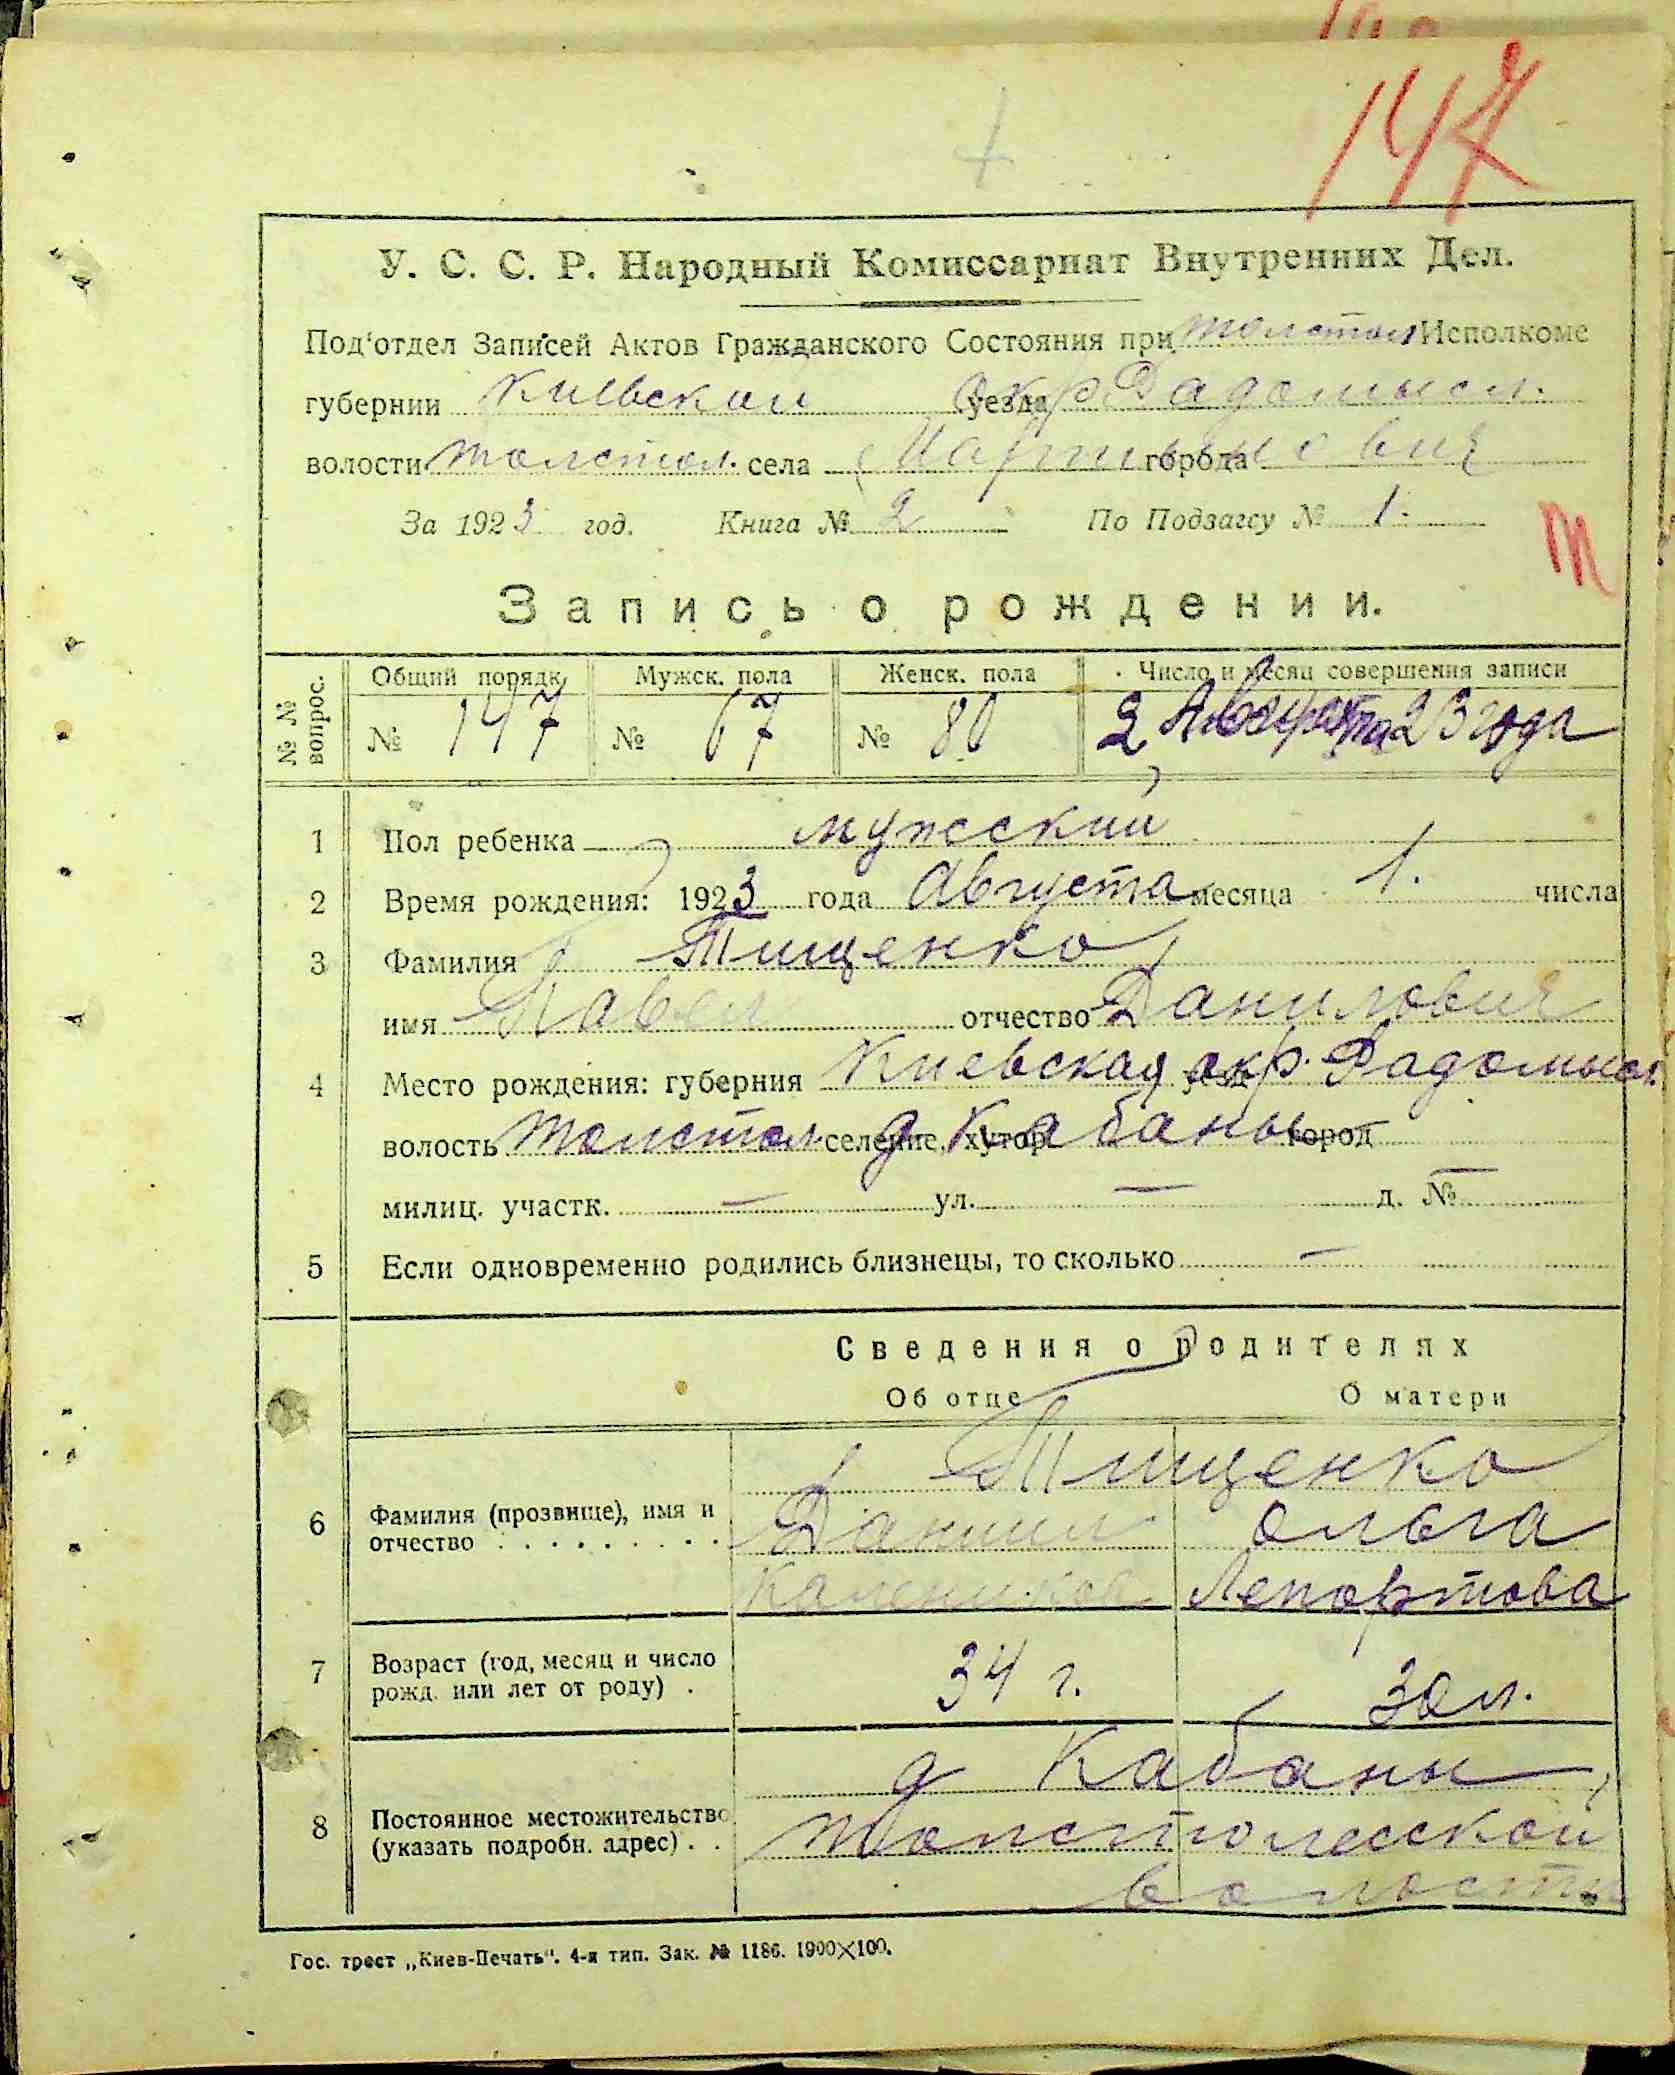 147
У. С. С. Р. Народный Комиссариат Внутренних Дел.
Под'отдел Записей Актов Гражданского Состояния при Толстол Исполкоме
губернии Киевской уезда окр Радомысл.
волости Толстол. села Мартынович города
За 1923 год. Книга № 2 По Подзагсу № 1.
М
Запись о рождении.
№ № вопрос. Общий порядк. Мужск. пола Женск. пола Число и месяц совершения записи
№ 147 № 67 № 80 2 Августа 23 года
1 Пол ребенка мужский
2 Время рождения: 1923 года Августа месяца 1. числа
3 Фамилия Тищенко
имя Павел отчество Данилович
4 Место рождения: губерния Киевская окр. Радомысл.
волость Толстол селение, хутор д Кабаны город
милиц. участк. — ул. — д. № —
5 Если одновременно родились близнецы, то сколько —
Сведения о родителях
Об отце О матери
Тищенко
6 Фамилия (прозвище), имя и Даниил Ольга
отчество . . . . . . . . .
Калеников Лепортова
7 Возраст (год, месяц и число 34 г. 30 л.
рожд. или лет от роду) .
д Кабаны
8 Постоянное местожительство Толстолесской
(указать подробн. адрес) . .
волости
Гос. трест „Киев-Печать". 4-я тип. Зак. № 1186. 1900×100.